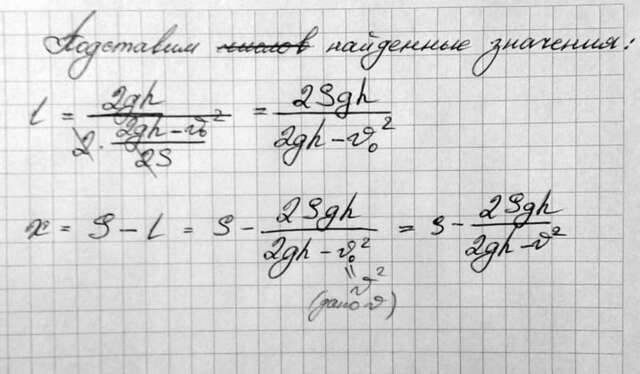 Подставим числов найденные значения:
l = 2gh / (2 · (2gh − v₀²) / 2S) = 2Sgh / (2gh − v₀²)
x = S − l = S − 2Sgh / (2gh − v₀²) = S − 2Sgh / (2gh − v²)
‖
v²
(дано v)